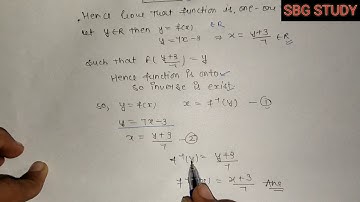 SBG STUDY
Hence prove that function is, one-one
let y∈R then y = f(x) ∈R
y = 7x-3 ⇒ x = y+3/7 ∈R
such that f(y+3/7) = y
Hence function is onto
so inverse is exist
so, y = f(x) x = f⁻¹(y) -①
y = 7x-3
x = y+3/7 -②
f⁻¹(y) = y+3/7
= x+3/7 Ans